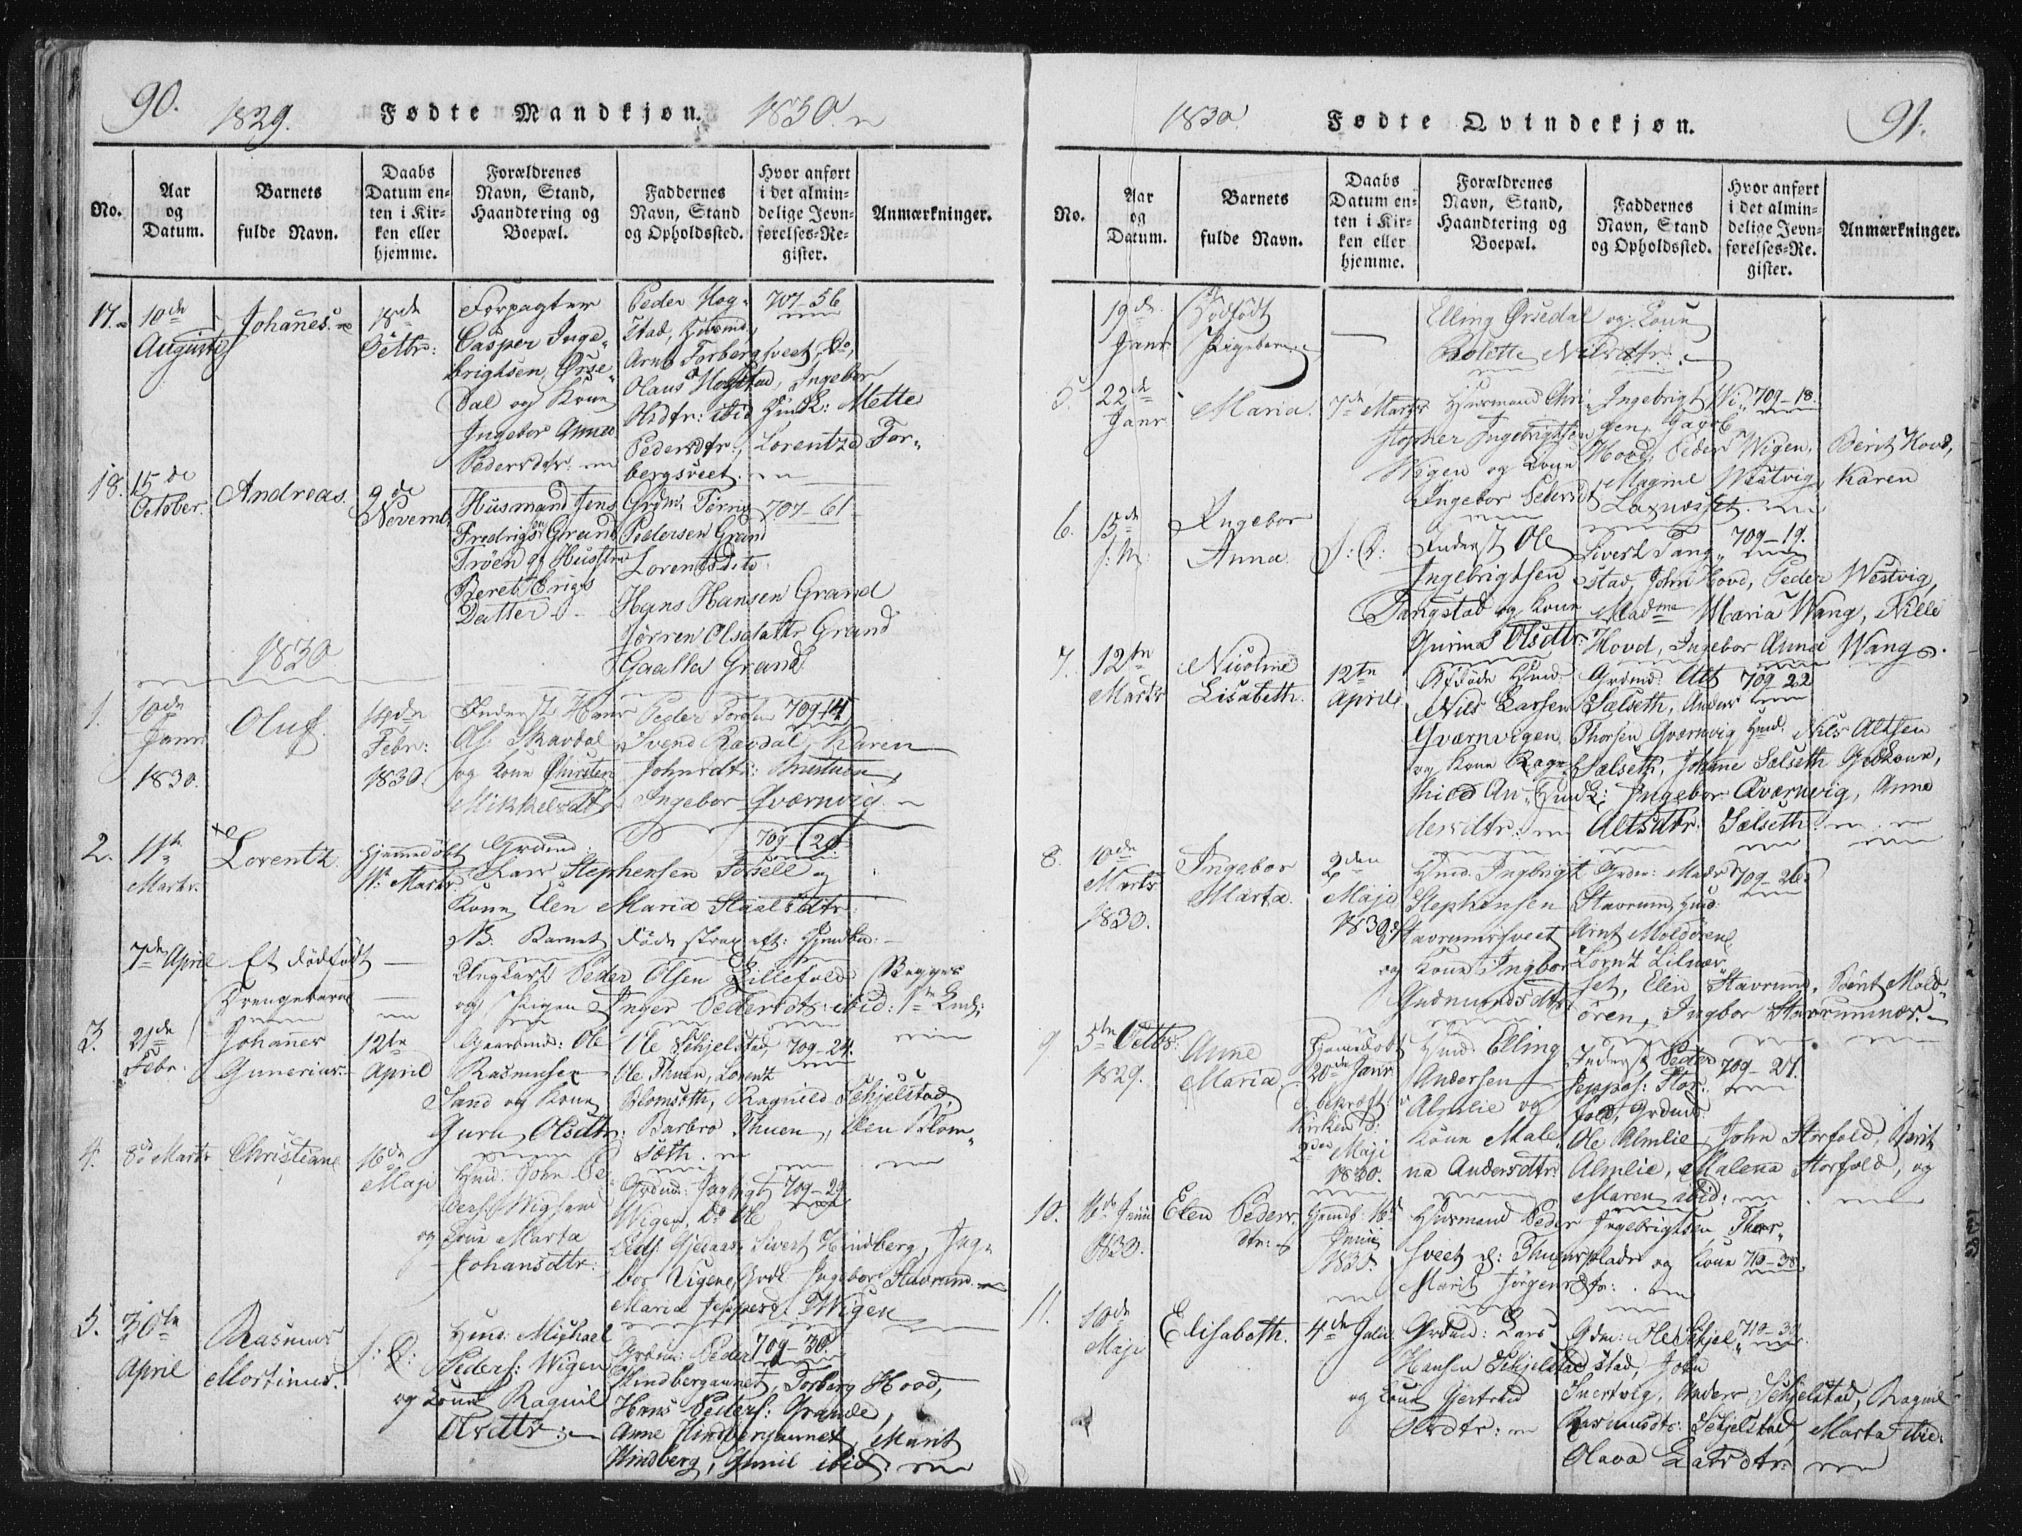 90. 1829. Fødte Mandkjøn. 1830.
No.
Aar og Datum.
Barnets fulde Navn.
Daabs Datum enten i Kirken eller hjemme.
Forældrenes Navn, Stand, Haandtering og Boepæl.
Faddernes Navn, Stand og Opholdssted.
Hvor anført i det almindelige Jevnførelses-Register.
Anmærkninger.
17. 10de August
Johanes.
18de Octbr:
Forpagter
Casper Inge-
brigtsen Ørse-
dal og Kone
Ingebor Anna
Pedersdtr.
Peder Hog-
stad,
Arnt Forbergsveet, Do,
Olaus Hogstad, Ingebor
Olsdtr: ibid Mette
Pedersdtr:, Lorentza For-
bergsveet.
707-56
18. 15de October.
Andreas.
2de Novemb.
Husmand Jens
Fredrigsen Grand
Trøen og Hustru
Beret Erigs
Datter
Grdm.
Pedersen Grand
Lorents dito
Hans Hansen Grand
Jørren Olsdattr Grand
Grand
707-61
1830
1. 10de Janr 1830.
Oluf.
14de Febr: 1830.
Inderst Hans
Ols: Skavdal
og Kone Kirsten
Mikkelsdtr
Peder
Svend Ravdal, Karen
Johnsdtr:
Ingebor Qværnvig.
709-14
2. 11te Martz.
Lorentz
Hjemmedøbt
Martz.
Grdmd:
Lars Stephensen Forselv og
Kone Elen Maria Staalsdtr:
NB. Barnet døde strax eft: Hjmdb:
709-20
7de April
Et dødfødt
Drengebarn
Ungkarl Peder Olsen Lillefold
og Pigen Inger Pedersdtr: ibid:
Begges 1ste
3. 21de Febr.
Johannes
Gunerius
12te April
Gaardmd: Ole
Rasmusen
Sand og Kone
Guru Olsdtr:
Ole Schjelstad,
Ole Thuen, Lorentz
Blomsøth, Ragnild Schjelstad,
Barbro Thuen, Elen Blom-
søth.
709-24.
4. 8de Martz
Christiane
16de Maji
Husmd. John Pe-
ders: Wigsend
og Kone Marta
Johansdtr:
Grdmd:
Wigen, Do Ole
Sivert Hindberg, Ing-
bor Vigen, Ingebor Stavrund
Maria Jeppesd. Wigen
709-29
5. 30te April
Rasmus
Mortinus.
S: D:
Husmd: Michael
Peders: Wigen
og Kone Ragnil
Olsdtr:
Grdmd: Peder
Hindbergaunet, Torberg Hovd,
Hans Peders: Grande,
Anne Hindbergaunet, Marit
Hindberg, Gunil ibid.
709-30.
1830. Fødte Qvindekjøn. 91.
No.
Aar og Datum.
Barnets fulde Navn.
Daabs Datum enten i Kirken eller hjemme.
Forældrenes Navn, Stand, Haandtering og Boepæl.
Faddernes Navn, Stand og Opholdssted.
Hvor anført i det almindelige Jevnførelses-Register.
Anmærkninger.
19de Janr
Dødfødt
Pigebarn
Elling Ørsedal og Kone
Bolette Nilsdtr:
5. 22de Janr
Maria.
7de Martz
Husmand Chri-
stopher Ingebrigtsen
Wigen og Kone
Ingebor Pedersdt
Ingebrigt Wi-
gen,
Hovd, Peder Wigen, Berit Hovd,
Magnil Westvig, Karen
Laxnæsset.
709-18.
6. 15de
Ingebor
Anna.
S: D:
Inderst Ole
Ingebrigtsen
Tangstad og Kone
Gurina Olsdtr.
Sivert Tang-
stad, John Hovd, Peder Westvig,
Madme Maria Wang, Nille
Hovd, Ingebor Anna Wang.
709-19.
7. 12te Martz
Nicoline
Lisabeth.
12te April
Husmd:
Nils Larsen
Qværnvigen
og Kone Ragn-
hild An-
dersdtr:
Grdmd: Alt
Sælseth, Anders
Thorsen Qværnvig Husmd. Nils Altsen
Sælseth, Johanne Sælseth Gdkone,
Ingebor Qværnvig, Anne
Altsdtr: Sælseth
709-22
8. 10de Martz 1830.
Ingebor
Marta.
2den Maji 1830.
Husmd. Ingbrigt
Stephensen
Stavrumsveet
og Kone Ingbor
Gudmundsdtr
Grdmr: Mads
Stavrum, Husmd:
Arnt Moldøren
Lornt Lilnæs-
set, Elen Stavrund, Berit Mold-
øren, Ingbor Stavrumnær.
709-26.
9. 5te Octbr: 1829.
Anne
Maria
Hjemdøbt
20de Janr
bekræft:
Kirken d:
2den Maji
1830.
Husmd: Elling
Andersen
Almlie og
Kone Male-
na Andersdtr
Inderst Peder
Jeppes: Stor-
fold, Grdmd:
Ole Almlie, John Storfold, Berit
Almlie, Malena Storfold, og
Maren ibid:
709-27.
10. 16de Junii 1830.
Elen Peders-
dtr:
Hjemdb: 16de
Junii
1830.
Husmand Peder Ingebrigtsen Thor-
sveet Thuenspladse og Kone
Marit Jørgensdtr:
710-38.
11. 10de Maji
Elisabeth.
4de Julii
Grdmd: Lars
Hansen Schjelstad
og Kone Gjertrud
Olsdtr:
Gdm: Ole Schjel-
stad, John
Snertvolg, Anders Schjelstad, Ragnil
Rasmusdtr: Schjelstad, Marta ibid:
Olava Larsdtr:
710-39.